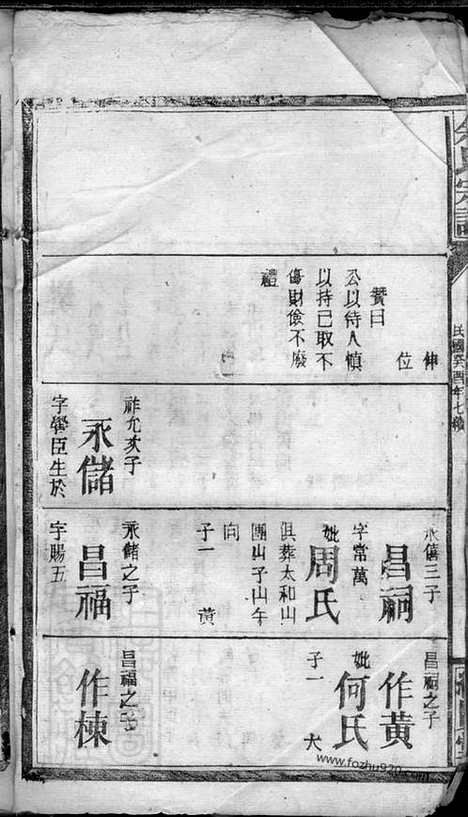 民國癸酉年七續
伸
位
贊曰
公以待人愼
以持己取不
傷財儉不廢
禮
祚允次子
永儲
字學臣生於
永僖三子
昌嗣
字常萬
妣
周氏
俱葬太和山
團山子山午
向
子一
黄
永儲之子
昌福
字賜五
昌嗣之子
作黄
妣
何氏
子一
大
昌福之子
作棟
www.fozhu920.com